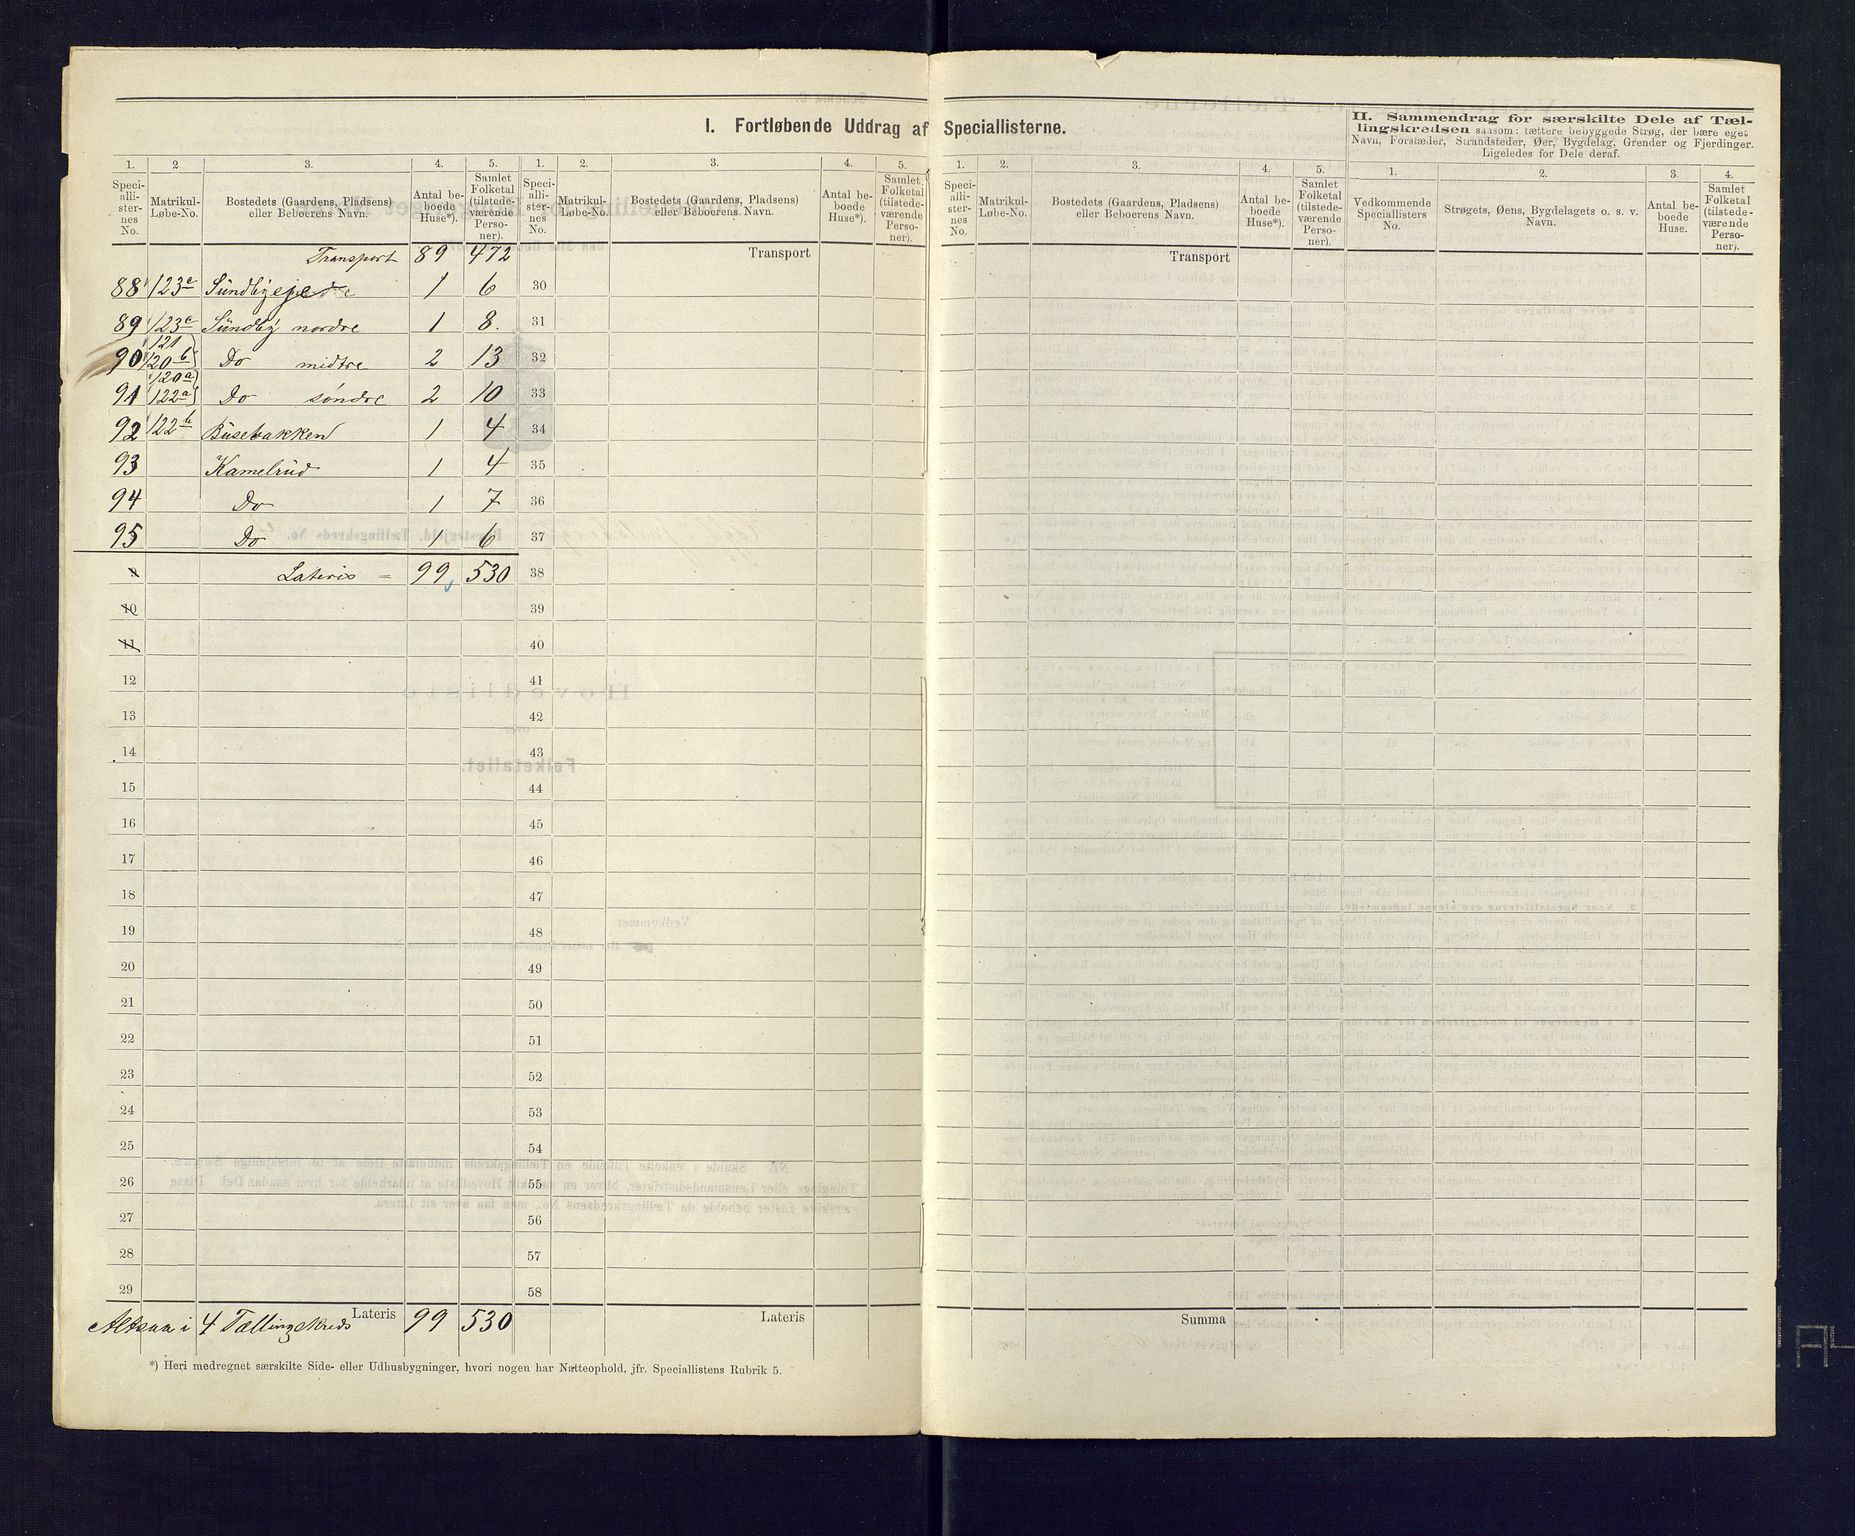 I. Fortløbende Uddrag af Speciallisterne.
II. Sammendrag for særskilte Dele af Tæl-
lingskredsen saasom: tættere bebyggede Strøg, der bære eget
Navn, Forstæder, Strandsteder, Øer, Bygdelag, Grender og Fjerdinger.
Ligeledes for Dele deraf.
1. 2 3. 4. 5. 1. 2. 3. 4. 5. 1. 2. 3. 4. 5. 1. 2. 3. 4.
Speciallisternes No. Matrikul-Løbe-No. Bostedets (Gaardens, Pladsens) eller Beboerens Navn. Antal beboede Huse*). Samlet Folketal (tilstedeværende Personer).
Speciallisternes No. Matrikul-Løbe-No. Bostedets (Gaardens, Pladsens) eller Beboerens Navn. Antal beboede Huse*). Samlet Folketal (tilstedeværende Personer).
Speciallisternes No. Matrikul-Løbe-No. Bostedets (Gaardens, Pladsens) eller Beboerens Navn. Antal beboede Huse*). Samlet Folketal (tilstedeværende Personer).
Vedkommende Speciallisters No. Strøgets, Øens, Bygdelagets o. s. v. Navn. Antal beboede Huse. Samlet Folketal (tilstedeværende Personer).
Transport 89 472 Transport Transport
88 123 1 6 30
89 123 c Sündby nordre 1 8. 31
90 121 120 b Do midtre 2 13 32
91 120 a 122 a Do søndre 2 10 33
92 122 b Büsebakken 1 4 34
93 Kamelrüd 1 4 35
94 Do 1 7 36
95 Do 1 6 37
9 Lateris = 99 530 38
10 39
11 40
12 41
13 42
14 43
15 44
16 45
17 46
18 47
19 48
20 49
21 50
22 51
23 52
24 53
25 54
26 55
27 56
28 57
29 58
Altsaa i 4 Tællingskreds Lateris 99 530 Lateris Summa
*) Heri medregnet særskilte Side- eller Udhusbygninger, hvori nogen har Natteophold, jfr. Speciallistens Rubrik 5.